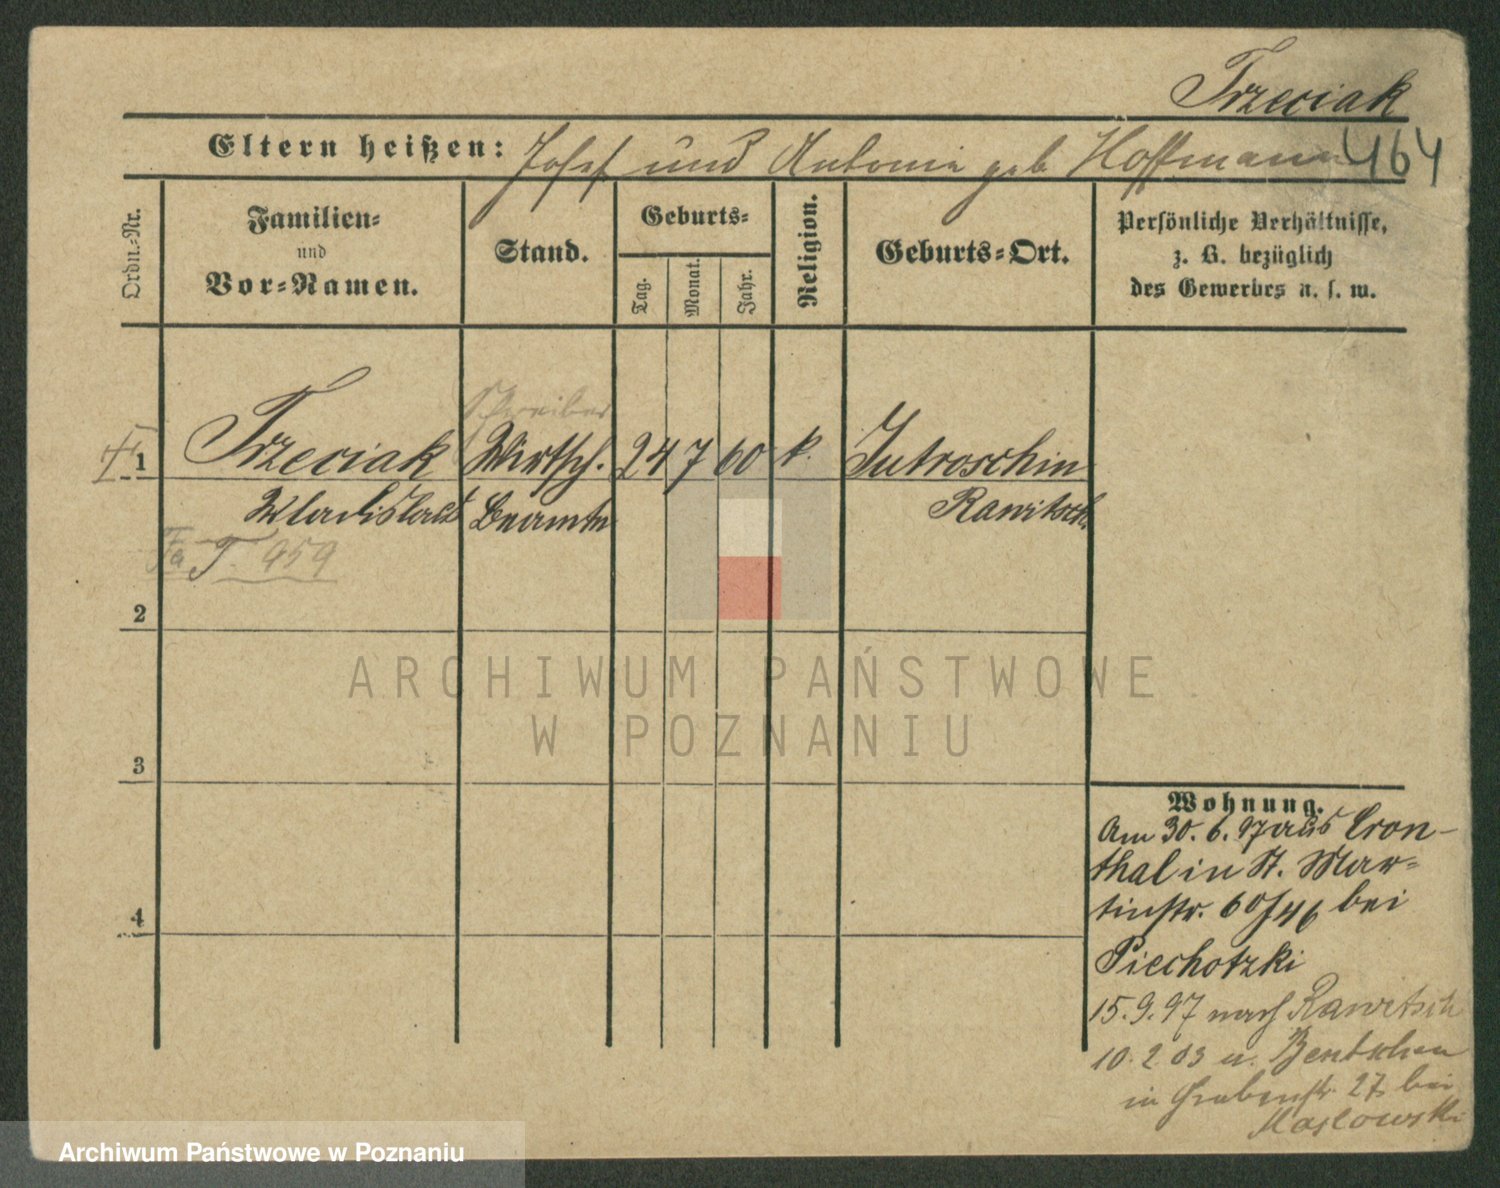 Trzeciak
Eltern heißen: Josef und Antonie geb Hoffmann 464
Ordn.-Nr.
Familien-
und
Vor-Namen.
Stand.
Geburts-
Tag.
Monat.
Jahr.
Religion.
Geburts-Ort.
Persönliche Verhältnisse,
z. B. bezüglich
des Gewerbes u. s. w.
Schreiber
1 Trzeciak Wirtsch. 24 7 60 k. Jutroschin
Wladislaus Beamter Rawitsch
Fa T. 959
2
3
4
Wohnung.
Am 30. 6. 97 aus Cron-
thal in St. Mar-
tinstr. 60/46 bei
Piechotzki
15. 9. 97 nach Rawitsch
10. 2. 03 u. Bentschen
in Grabenstr. 27 bei
Maslowski
ARCHIWUM PAŃSTWOWE
W POZNANIU
Archiwum Państwowe w Poznaniu